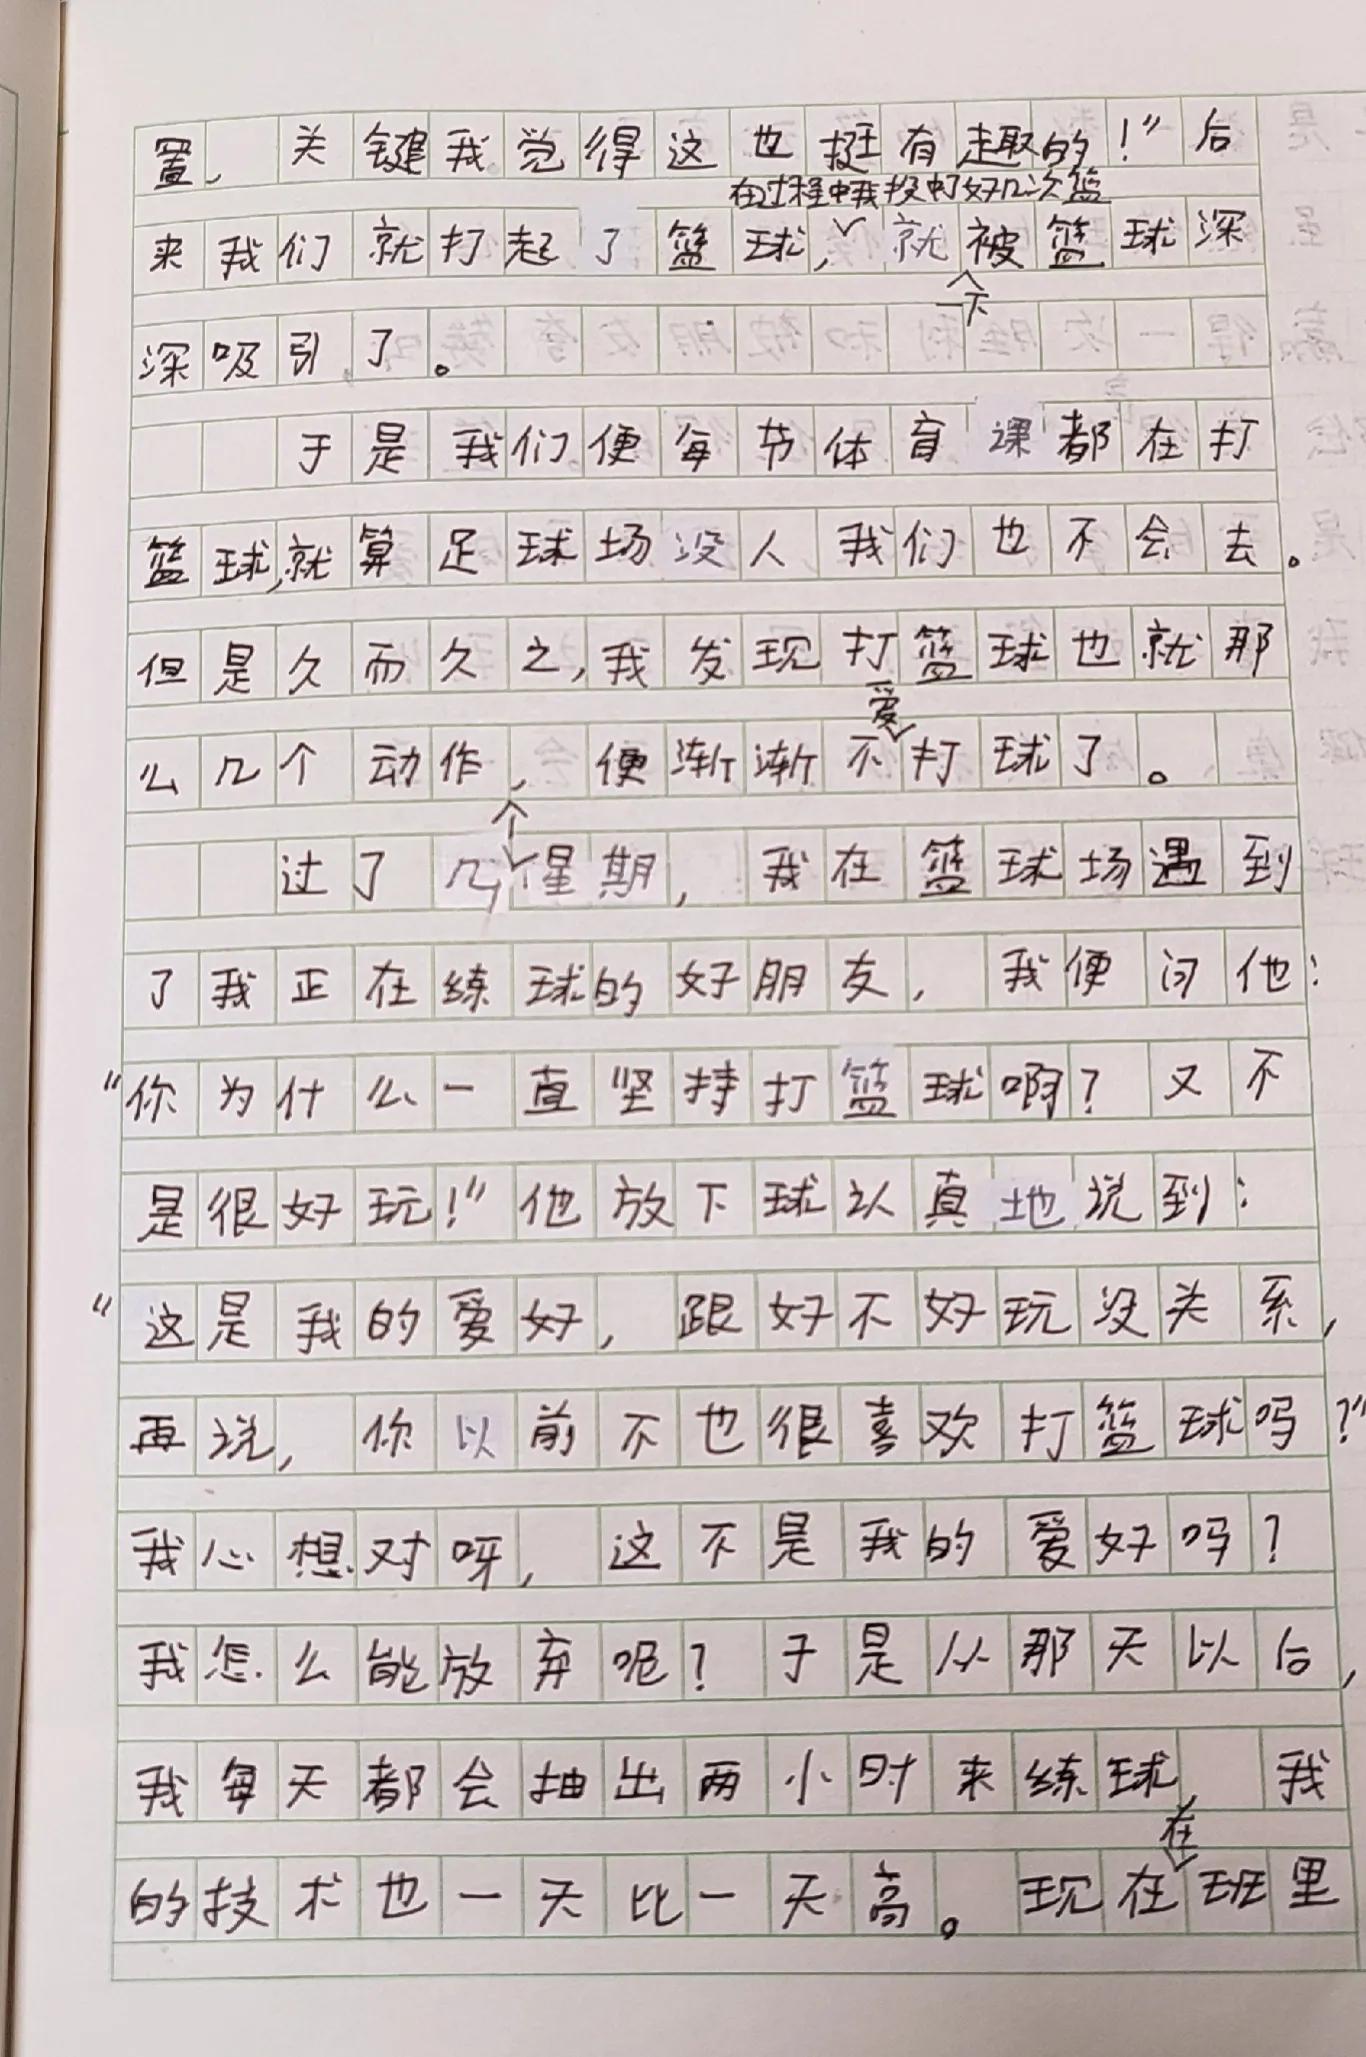 置，关键我觉得这也挺有趣的！”后
在过程中我投中了好几次篮
来我们就打起了篮球，就被篮球深
一下
深吸引了。
于是我们便每节体育课都在打
篮球，就算足球场没人我们也不会去。
但是久而久之，我发现打篮球也就那
爱
么几个动作，便渐渐不打球了。
个
过了几星期，我在篮球场遇到
了我正在练球的好朋友，我便问他：
“你为什么一直坚持打篮球啊？又不
是很好玩！”他放下球认真地说到：
“这是我的爱好，跟好不好玩没关系，
再说，你以前不也很喜欢打篮球吗？”
我心想对呀，这不是我的爱好吗？
我怎么能放弃呢？于是从那天以后，
我每天都会抽出两小时来练球，我
在
的技术也一天比一天高。现在班里